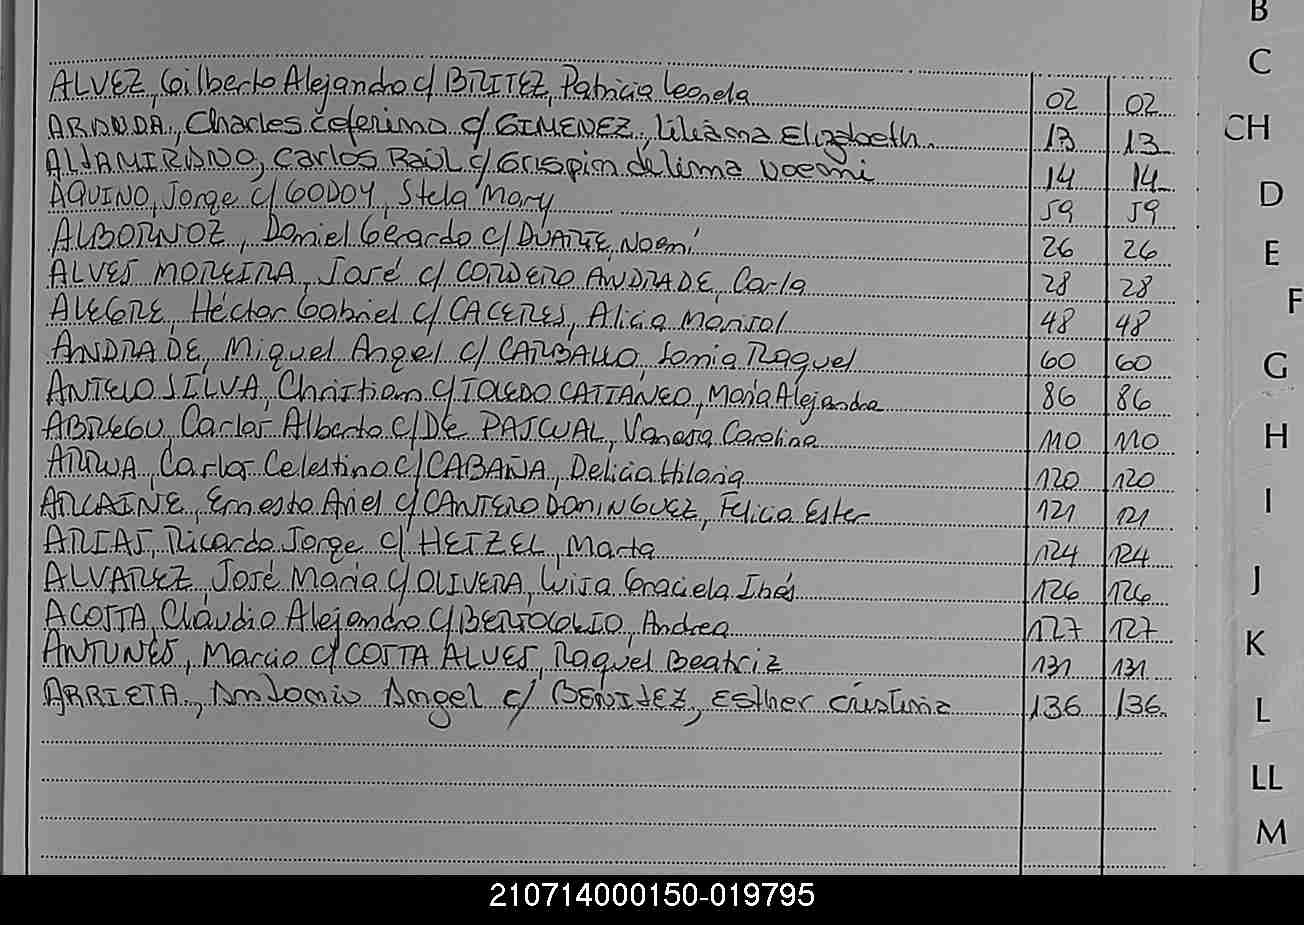 B
C
CH
D
E
F
G
H
I
J
K
L
LL
M
ALVEZ, Gilberto Alejandro c/ BRITEZ, Patricia Leonela 02 02
ARRUDA, Charles Ceferino c/ GIMENEZ, Liliana Elizabeth. 13 13
ALTAMIRANO, Carlos Raúl c/ Crispin de Lima Noemi 14 14
AQUINO, Jorge c/ GODOY, Stela Mary 59 59
ALBORNOZ, Daniel Gerardo c/ DUARTE, Noemí 26 26
ALVES MOREIRA, José c/ CORDERO ANDRADE, Carla 28 28
ALEGRE, Héctor Gabriel c/ CACERES, Alicia Marisol 48 48
ANDRADE, Miguel Angel c/ CARBALLO, Sonia Raquel 60 60
ANTELO SILVA, Christian c/ TOLEDO CATTANEO, María Alejandra 86 86
ABREGU, Carlos Alberto c/ DE PASCUAL, Vanesa Carolina 110 110
Carlos Celestino c/ CABAÑA, Delicia Hilaria 120 120
ALCAINE, Ernesto Ariel c/ CANTERO DOMINGUEZ, Felica Ester 121 121
ARIAS, Ricardo Jorge c/ HETZEL, Marta 124 124
ALVAREZ, José María c/ OLIVERA, Luisa Graciela Inés 126 126
ACOSTA, Claudio Alejandro c/ BERTOGLIO, Andrea 127 127
ANTUNES, Marcio c/ COSTA ALVES, Raquel Beatriz 131 131
ARRIETA, Antonio Angel c/ BENITEZ, Esther Cristina 136 136
210714000150-019795